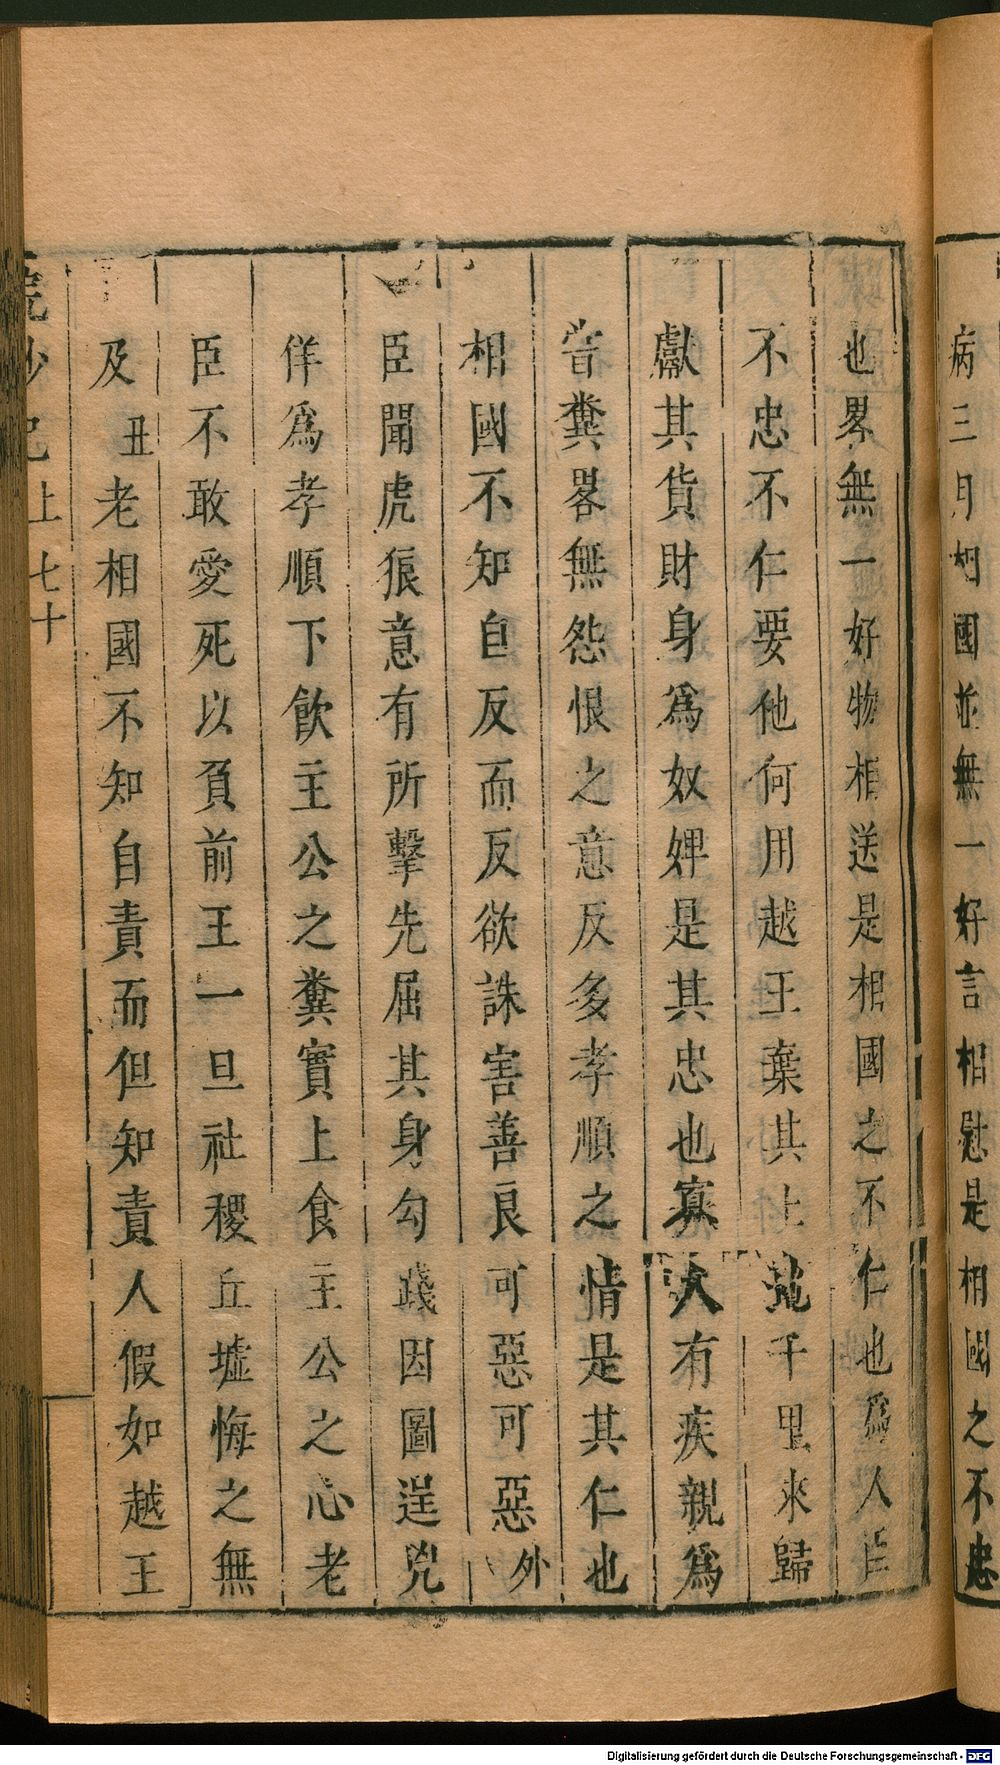 病三月相國並無一好言相慰是相國之不忠
也畧無一好物相送是相國之不仁也爲人臣
不忠不仁要他何用越王棄其土地千里來歸
獻其貨財身爲奴婢是其忠也寡人有疾親爲
嘗糞畧無怨恨之意反多孝順之情是其仁也
相國不知自反而反欲誅害善良可惡可惡外
臣聞虎狼意有所擊先屈其身勾踐因圖逞兇
佯爲孝順下飲主公之糞實上食主公之心老
臣不敢愛死以負前王一旦社稷丘墟悔之無
及丑老相國不知自責而但知責人假如越王
浣紗記上 七十
Digitalisierung gefördert durch die Deutsche Forschungsgemeinschaft - DFG